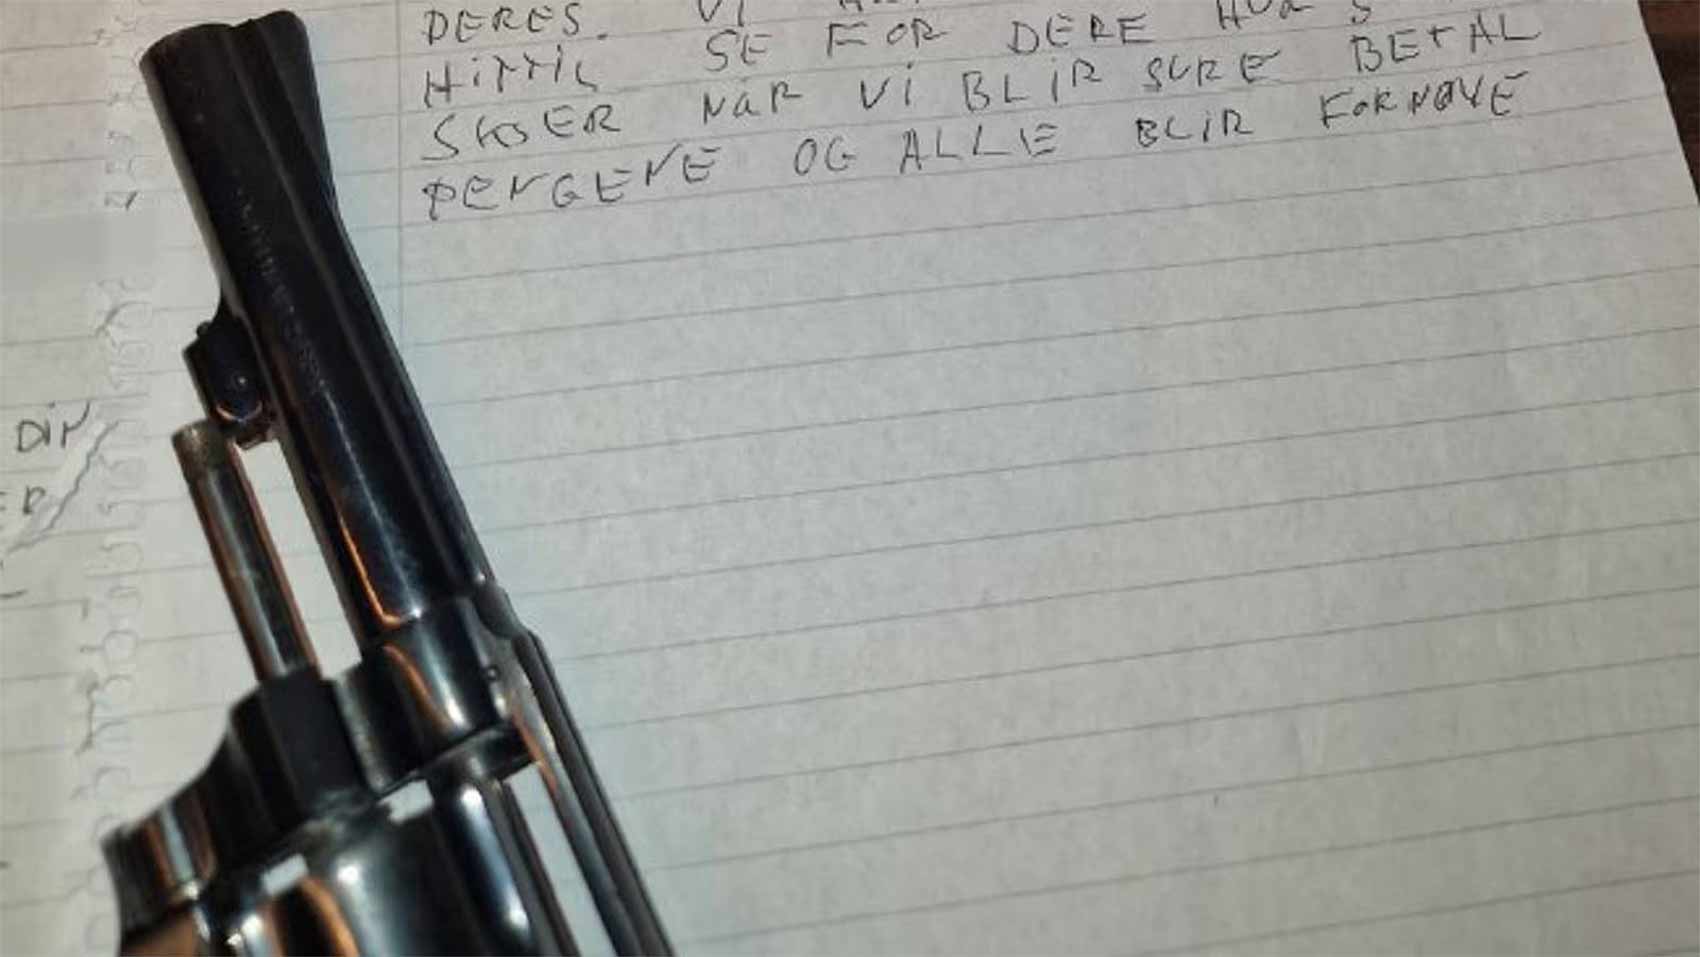 DERES. VI
HITTIL SE FOR DERE HVA S
SKJER NÅR VI BLIR SURE BETAL
PENGENE OG ALLE BLIR FORNØYE
DIN
ER